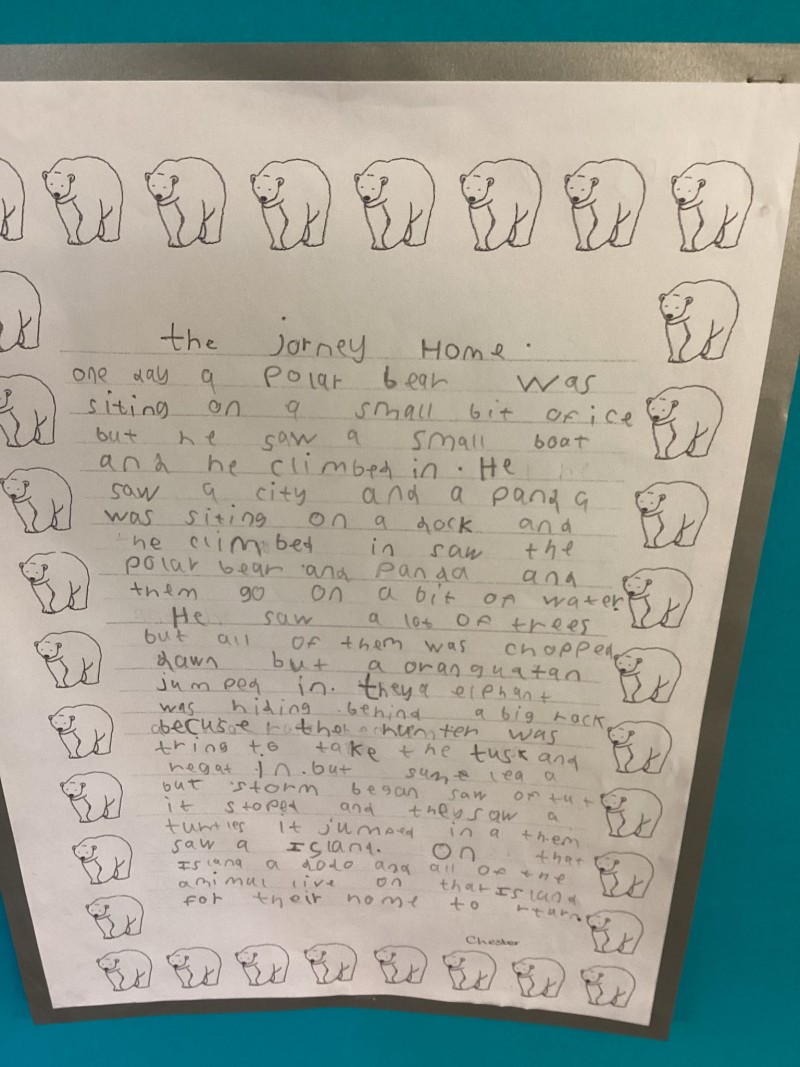 the jorney Home.
one day a polar bear was
siting on a small bit of ice
but he saw a small boat
and he climbed in. He
saw a city and a panda
was siting on a dock and
he climbed in saw the
polar bear and panda and
them go on a bit of water.
He saw a lot of trees
but all of them was chopped
dawn but a oranguatan
jumped in. they a elphant
was hiding behind a big rock
becuse the hunter was
tring to take the tusk and
in. but a
but storm began saw of tut
it stoped and they saw a
turtles It jumped in a them
saw a Island. On that
Island a dodo and all of the
animal live on that Island
for their home to rturn.
Chester